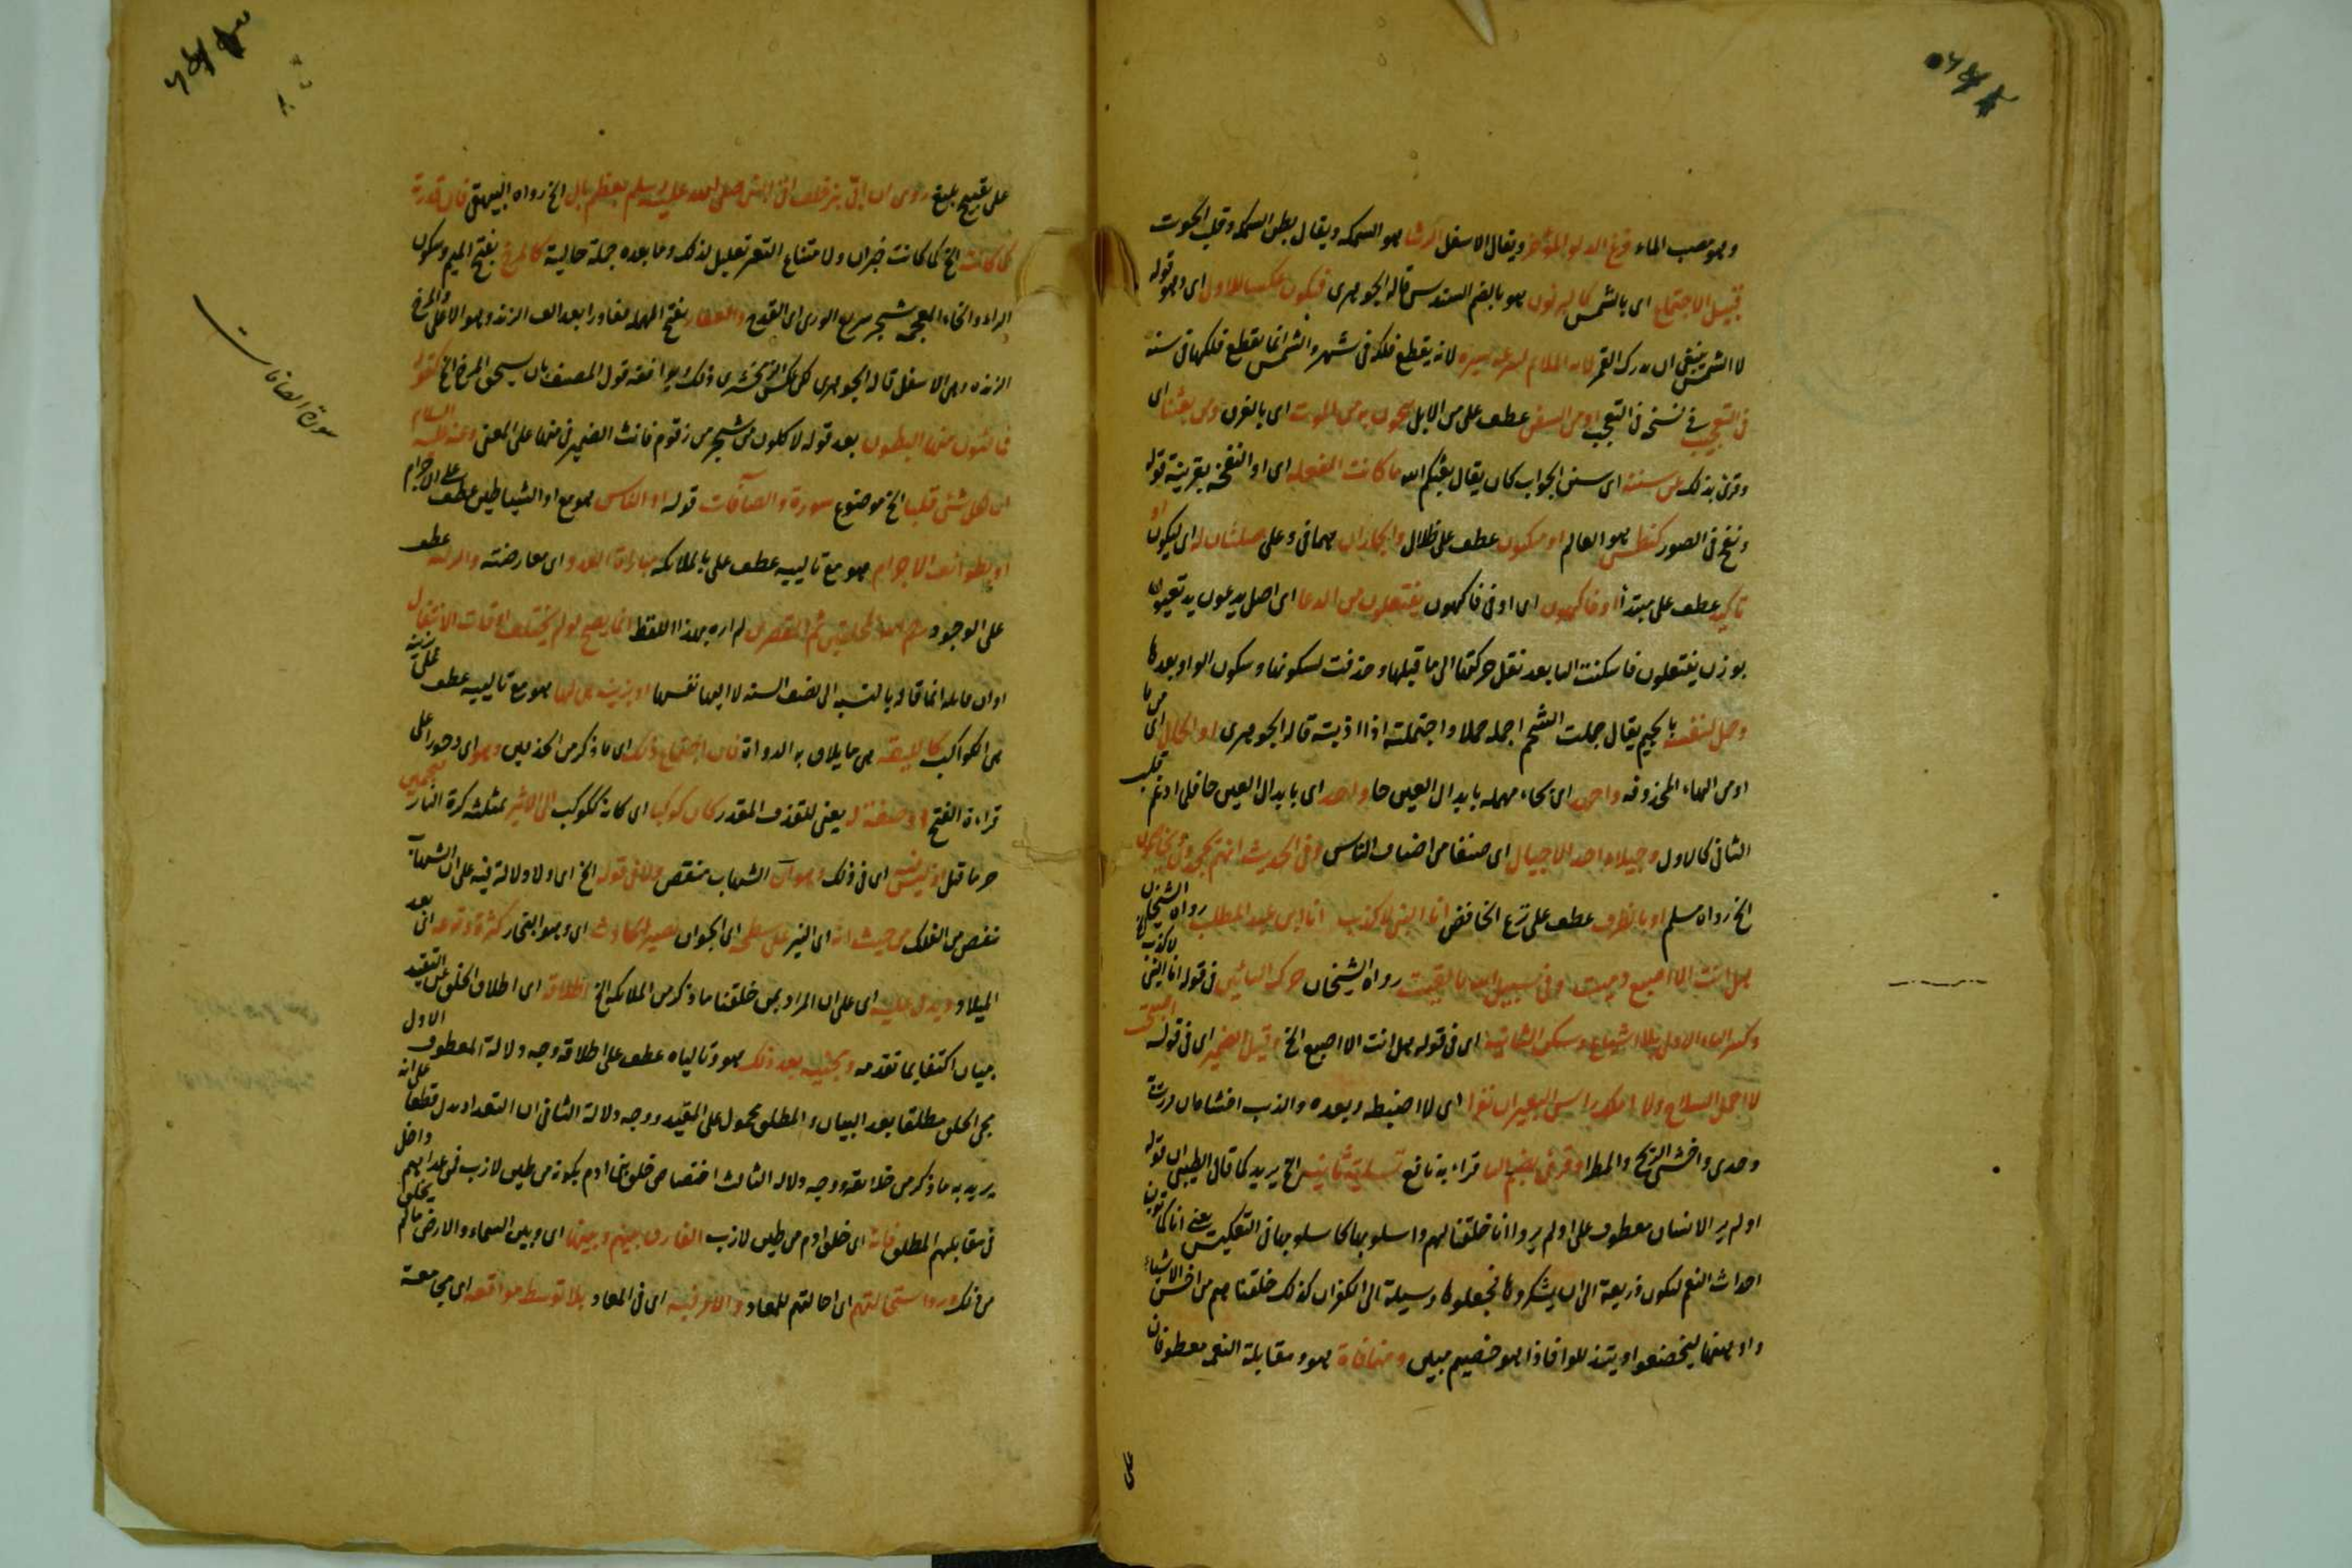 وهو مصب الماء فرغ الدلو المؤخر ويقال الاسفل الرشا هو السمكة ويقال بطن السمكة وقلب الحوت
قبيل الاجتماع اى بالشمس كالبزيون هو بالضم السندس قاله الجوهرى فيكون عكسا للاول اى وهو قوله
لا الشمس ينبغى ان يدرك القمر لانه الملايم لسرعة سيره لانه يقطع فلكه فى شهر والشمس انما يقطع فلكها فى سنة
فى التعجب فى نسخة فى التعجب او من السفن عطف على من الابل ينجون به من الموت اى بالغرق ومن بعثنا اى
وقرئ بذلك عن سننه اى سنن الجواب كان يقال بعثكم الله ما كانت الفعلة اى او النفخة بقرينة قوله
ونفخ فى الصور كنطس هو العالم او سكون عطف على ظلال والجاران هما فى وعلى صلتان له اى ليكون او
تاكيد عطف على مبتدأ او فاكهون اى او فى فاكهون يفتعلون من الدعا اى اصل يدعون يدتعيون
بوزن يفتعلون فاسكنت اليا بعد نقل حركتها الى ما قبلها وحذفت لسكونها وسكون الواو بعدها
وجمل لنفسه بالجيم يقال جملت الشحم اجمله جملا واجتملته اذا اذبته قاله الجوهرى او الحال اى من ما
او من الهاء المحذوفة واحد اى بحاء مهملة بابدال العين حا واحد اى بابدال العين حا قلب ادغم
الثانى كالاول وجيلا واحد الاجيال اى صنفا من اصناف الناس وفى الحديث انهم يجحدون ويخاصمون
الخ رواه مسلم او بالظرف عطف على نزع الخافض انا النبى لا كذب انا ابن عبد المطلب رواه الشيخان
هل انت الا اصبع دميت وفى سبيل الله ما لقيت رواه الشيخان حرك البائين فى قوله انا النبى لا كذب
وكسر التاء الاولى بلا اشباع وسكن الثانية اى فى قوله هل انت الا اصبع الخ وقيل الضمير اى فى قوله
لا احمل السلاح ولا املك راس البعير ان نفرا اى لا اضبطه وبعده والذيب اخشاه ان مررت به
وحدى واخشى الريح والمطرا وقرئ بضم اليا قراءة نافع تسلية ثانية الخ يريد كما قال الطيبى ان قوله
او لم ير الانسان معطوف على او لم يروا انا خلقنا لهم واسلوبها كاسلوبها فى التعكيس يعنى انا كما تولينا
احداث النعم لتكون ذريعة الى ان يشكروها فجعلوها وسيلة الى الكفران كذلك خلقناهم من اخس الاشياء
وامهنها ليخضعوا ويتذللوا فاذا هو خصيم مبين ومنافاة هو ومقابلة النعم معطوفان
على
على تقبيح بليغ روى ان ابى بن خلف اتى النبى صلى الله عليه وسلم بعظم بال الخ رواه البيهقى فان قدرته
كما كانت الخ كما كانت خبر ان ولامتناع التغير تعليل لذلك وما بعده جملة حالية كالمرخ بفتح الميم وسكون
الراء والخاء المعجمة شجر سريع الورى اى القدح والعفار بفتح المهملة ففاء ورا بعد الف الزند وهو الاعلى والمرخ
الزنده وهى الاسفل قاله الجوهرى لكن عكس الزمخشرى ذلك ويوافقه قول المصنف بان يسحق المرخ الخ كقوله
فمالئون منها البطون بعد قوله لاكلون من شجر من زقوم فانث الضمير فى منها على المعنى وعنه عليه السلام
ان لكل شئ قلبا الخ موضوع سورة والصافات قوله او الناس هو مع او الشياطين عطف على الاجرام
او بطوائف الاجرام هو مع تالييه عطف على بالملائكة مباراة العدو اى معارضته والرتبة عطف
على الوجود رحم الله المحلقين ثم المقصرين لم اره بهذا اللفظ انما يصح لو لم يختلف اوقات الانتقال
او ان ما عليه انما قاله بالنسبة الى نصف السنة لا ايها نفسها او بزينة هى لها هو مع تالييه عطف على بزينة
هى الكواكب كالليقة هى ما يلاق به الدواة فان اجتماع ذلك اى ما ذكر من الحذفين وهو اى دحورا على
قراءة الفتح او صفة له يعنى للقذف المقدر كان كوكبا اى كانه كوكب الى الاثير بمثلثة كرة النار
حرما قبل اذ ليس فيه اى فى ذلك وهو ان الشهاب منقص ولا فى قوله الخ اى ولا دلالة فيه على ان الشهاب
ينقص من الفلك من حيث انه اى النير على سطحه اى الجو ان يصير الحادث اى وهو البخار كثرة وقوعه انى بعد
الميلاد ويدل عليه اى على ان المراد بمن خلقنا ما ذكر من الملائكة الخ اطلاقه اى اطلاق الخلق عن التقييد
ببيان اكتفا بما تقدمه ومجيئه بعد ذلك هو وتالياه عطف على اطلاقه وجه دلالة المعطوف الاول
مجئ الخلق مطلقا بعد البيان والمطلق محمول على المقيد ووجه دلالة الثانى ان التعداد يدل قطعا على انه
يريد به ما ذكر من خلائقه ووجه دلالة الثالث اختصاص خلق بنى ادم بكونه من طين لازب فمن عداهم داخل
فى مقابلهم المطلق فانه اى خلق ادم من طين لازب الفارق بينهم وبينها اى وبين السماء والارض ما لم يخلق
من ذلك ورد استحالتهم اى احالتهم للمعاد والامر فيه اى فى المعاد بلا توسط مواقعه اى مجامعة
سورة الصافات